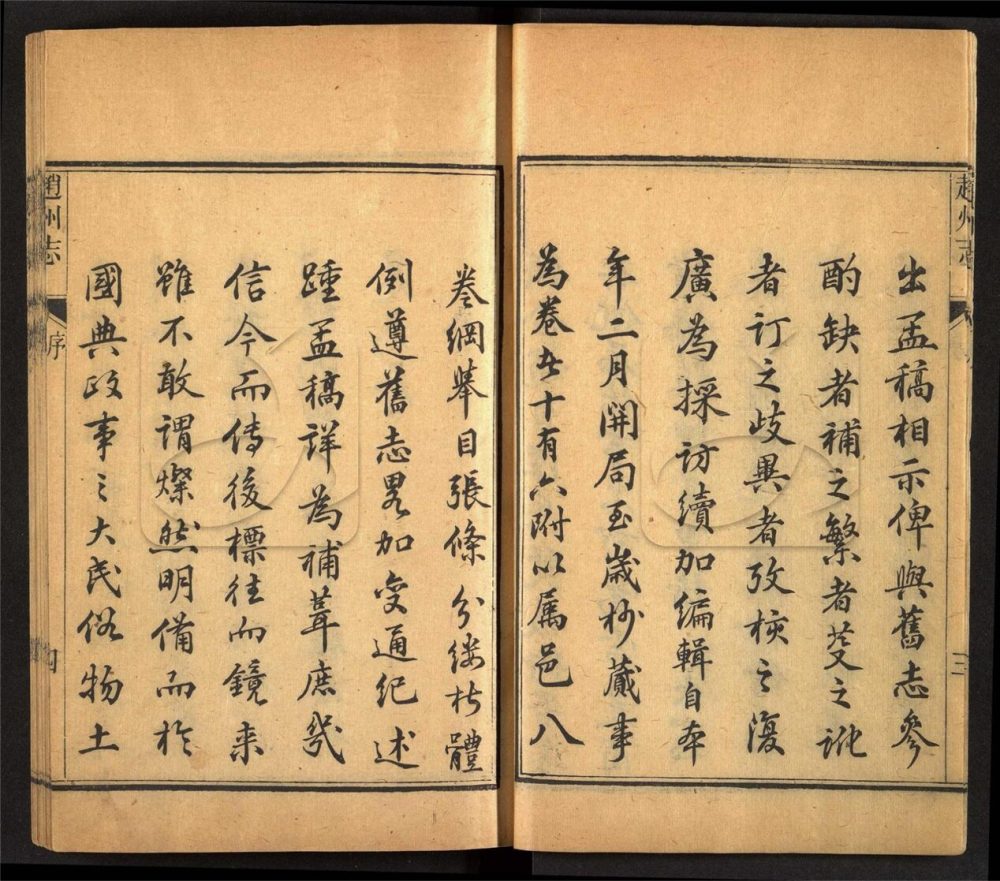 趙州志
三
出孟稿相示俾與舊志參
酌缺者補之繁者芟之訛
者訂之歧異者攷核之復
廣為採訪續加編輯自本
年二月開局至歲杪蕆事
為卷者十有六附以属邑八
卷綱舉目張條分縷析體
例遵舊志畧加变通紀述
踵孟稿詳為補葺庶幾
信今而傳後標往而鏡来
雖不敢謂燦然明備而於
國典政事之大民俗物土
趙州志
序
四